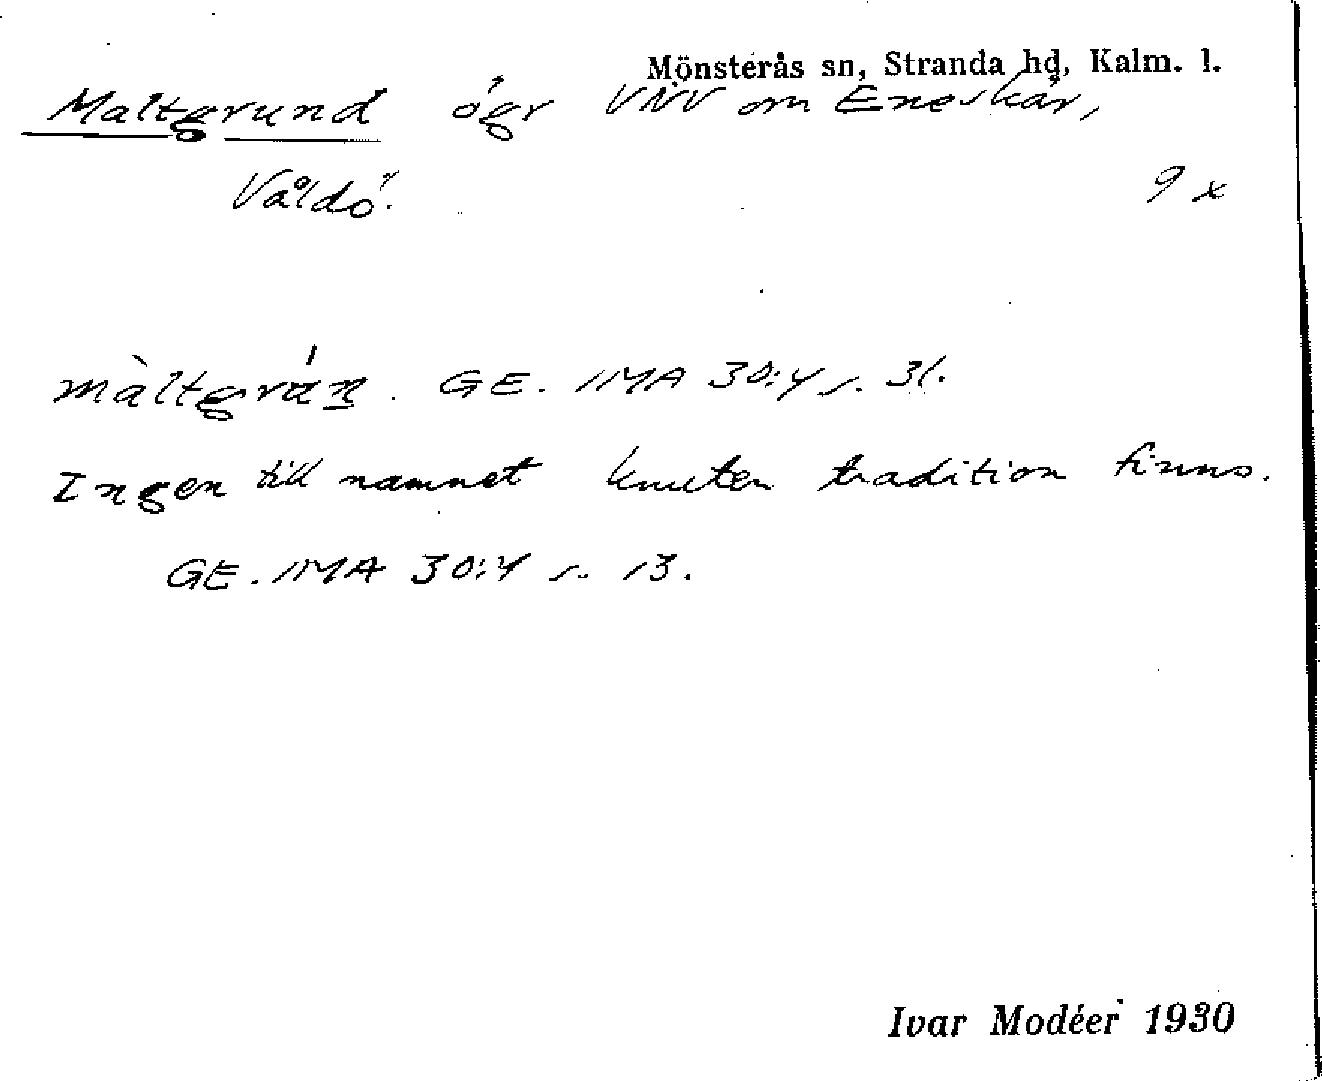 Mönsterås sn, Stranda hd, Kalm. l.
Maltgrund ögr VNV om Eneskär,
Våldö. 9 x
màltgrún. GE. IMA 30:4 s. 31.
Ingen till namnet knuten tradition finns.
GE. IMA 30:4 s. 13.
Ivar Modéer 1930